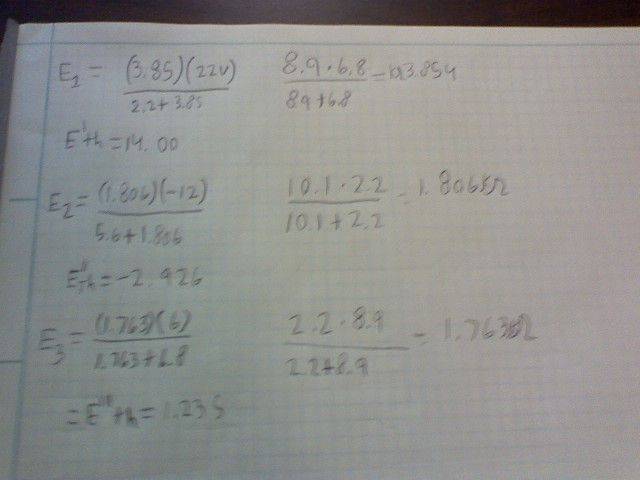 E1 = (3.85)(22V) / 2.2+3.85    8.9·6.8 / 8.9+6.8 = 3.854
E'th = 14.00
E2 = (1.806)(-12) / 5.6+1.806    10.1·2.2 / 10.1+2.2 = 1.806KΩ
E''th = -2.926
E3 = (1.763)(6) / 1.763+6.8    2.2·8.9 / 2.2+8.9 = 1.763KΩ
= E'''th = 1.235